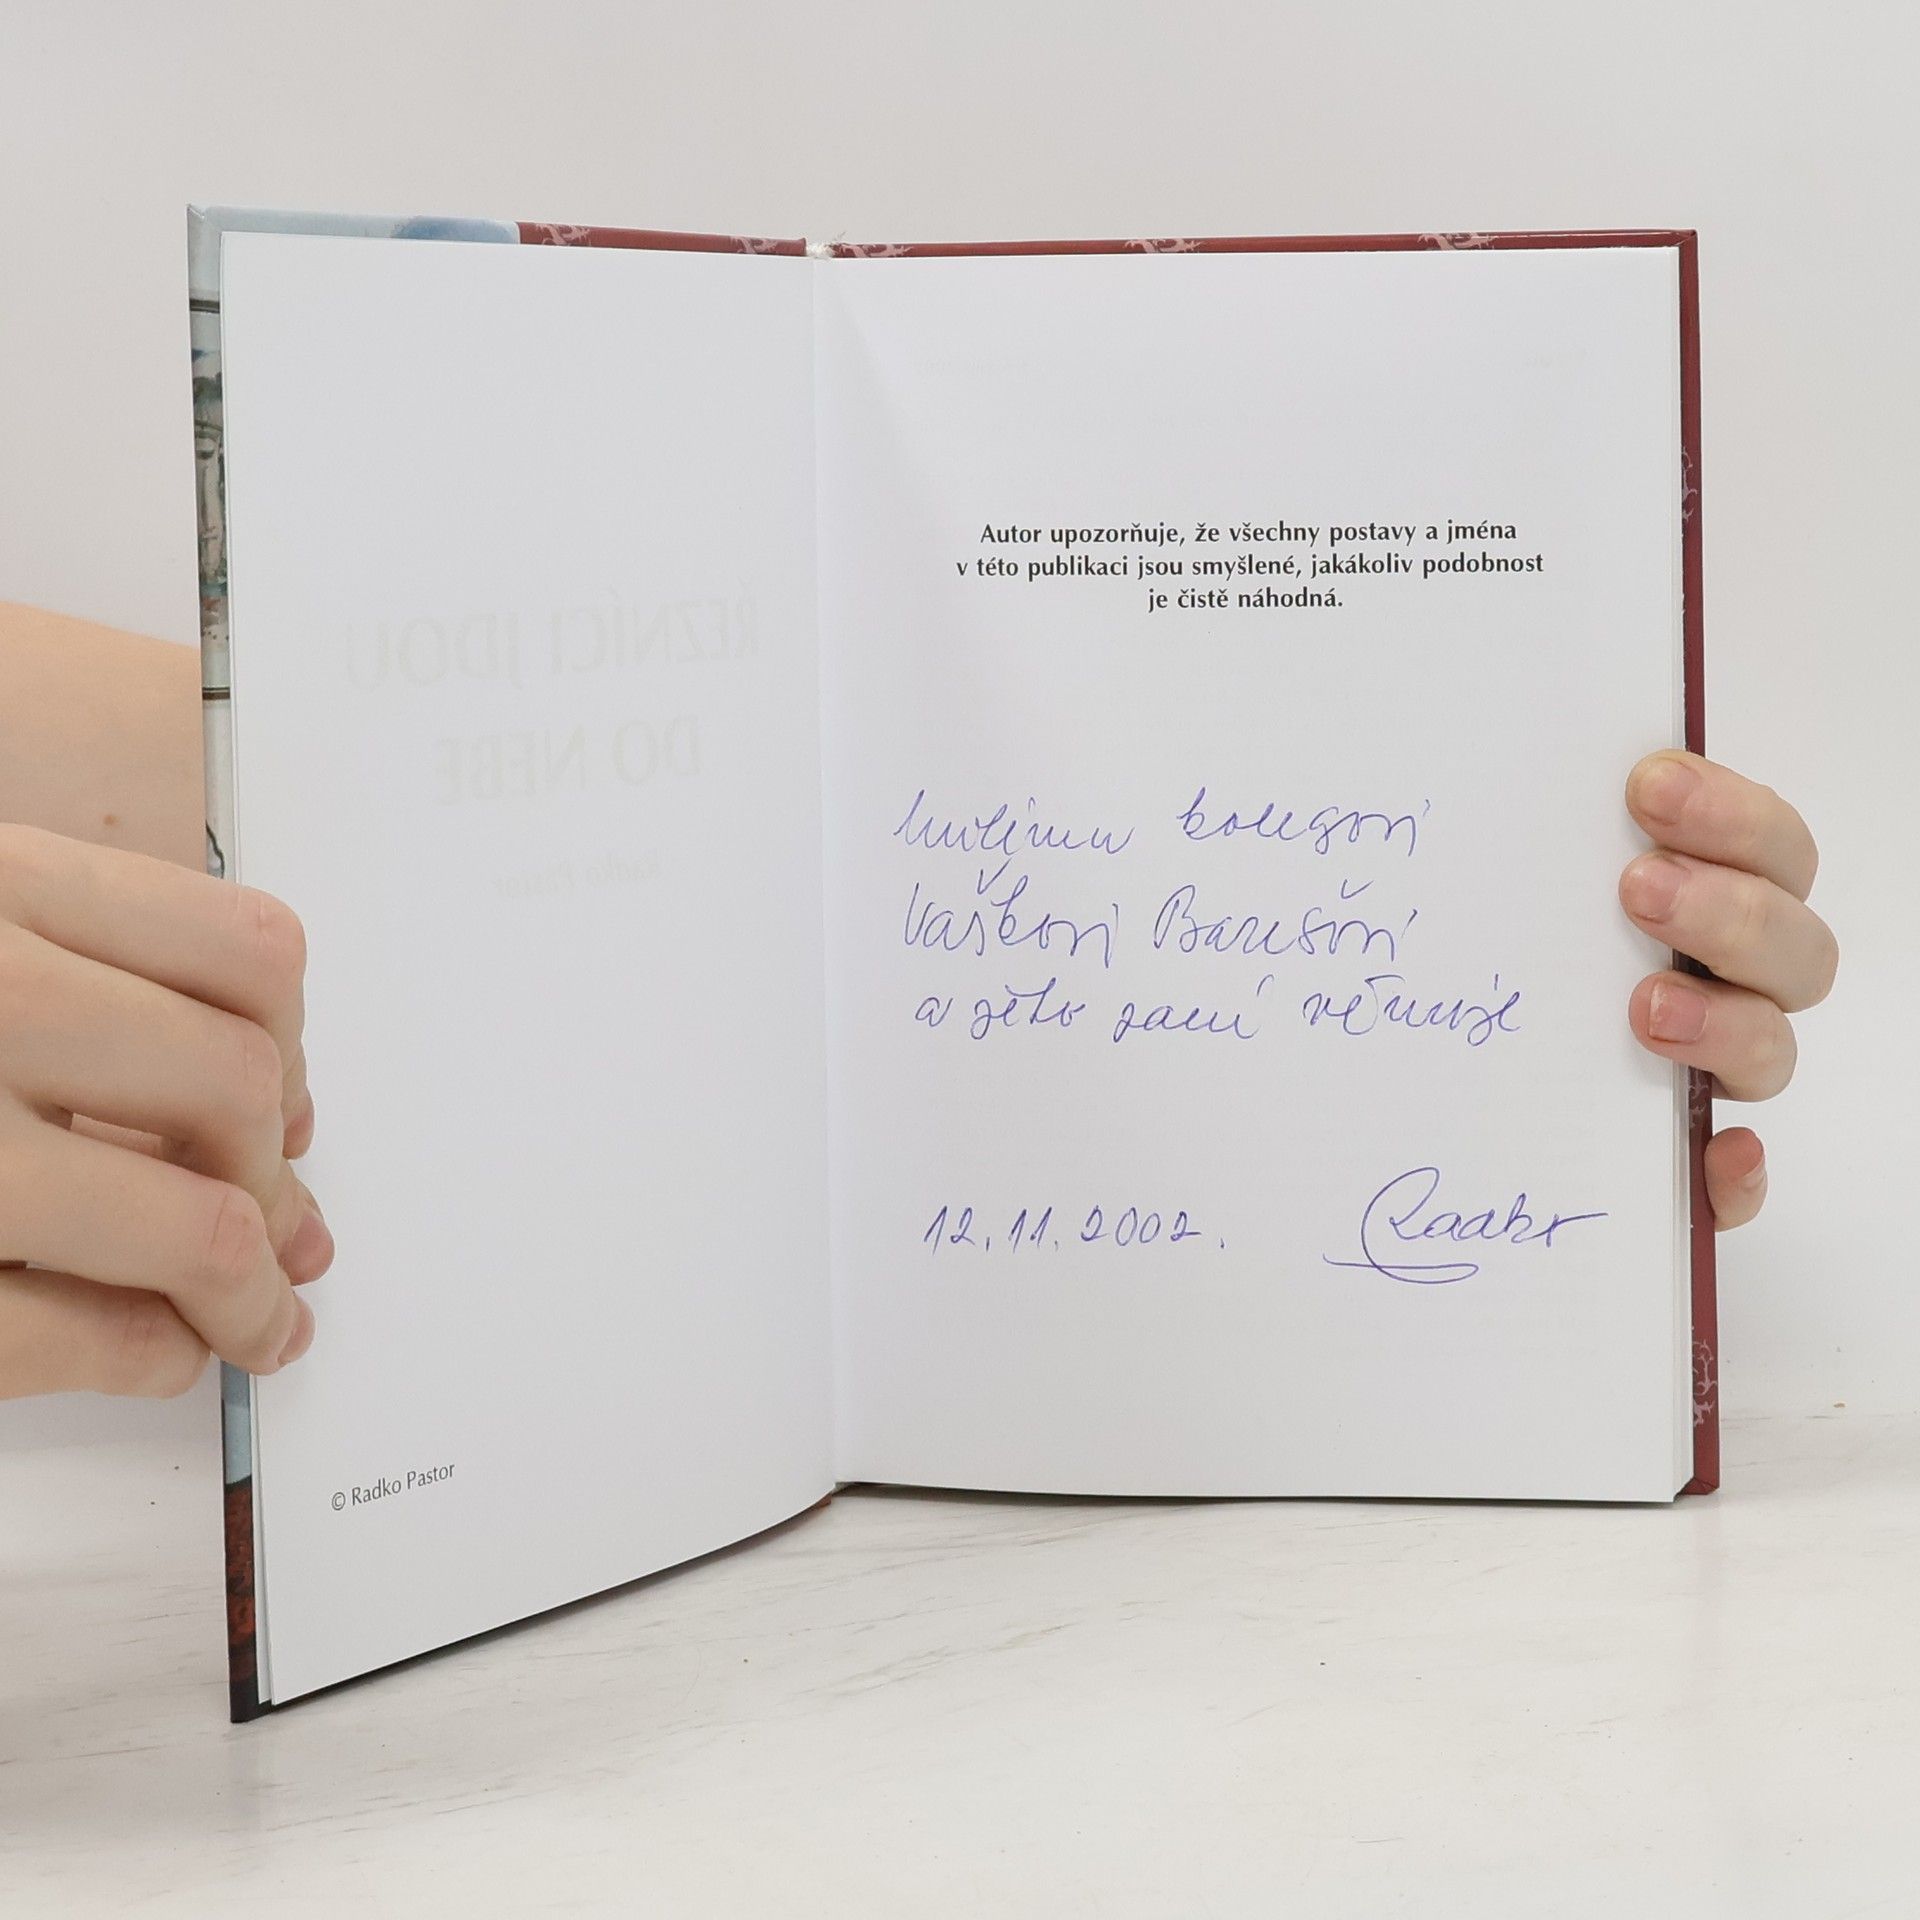 ŘEZNÍCI JDOU
DO NEBE
Radko Pastor
© Radko Pastor
Autor upozorňuje, že všechny postavy a jména
v této publikaci jsou smyšlené, jakákoliv podobnost
je čistě náhodná.
milému kolegovi
Vaškovi Barešovi
a jeho paní věnuje
12.11.2002.
Radko